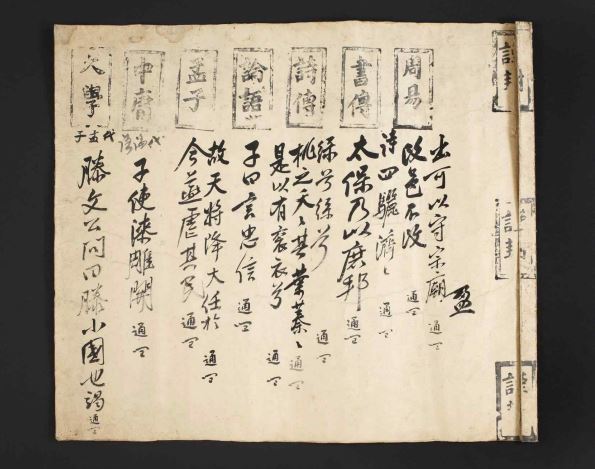 周易
出可以守宗廟
通
改邑不改
通
書傳
詩四驪濟〻
通
太保乃以庶邦
通
詩傳
通
桃之夭〻其葉蓁〻
通
是以有袞衣兮
通
論語
子曰言忠信
通
孟子
故天將降大任於
通
今燕虐其民
通
中庸
代論語
子使漆雕開
通
大學
代孟子
滕文公問曰滕小國也竭
通